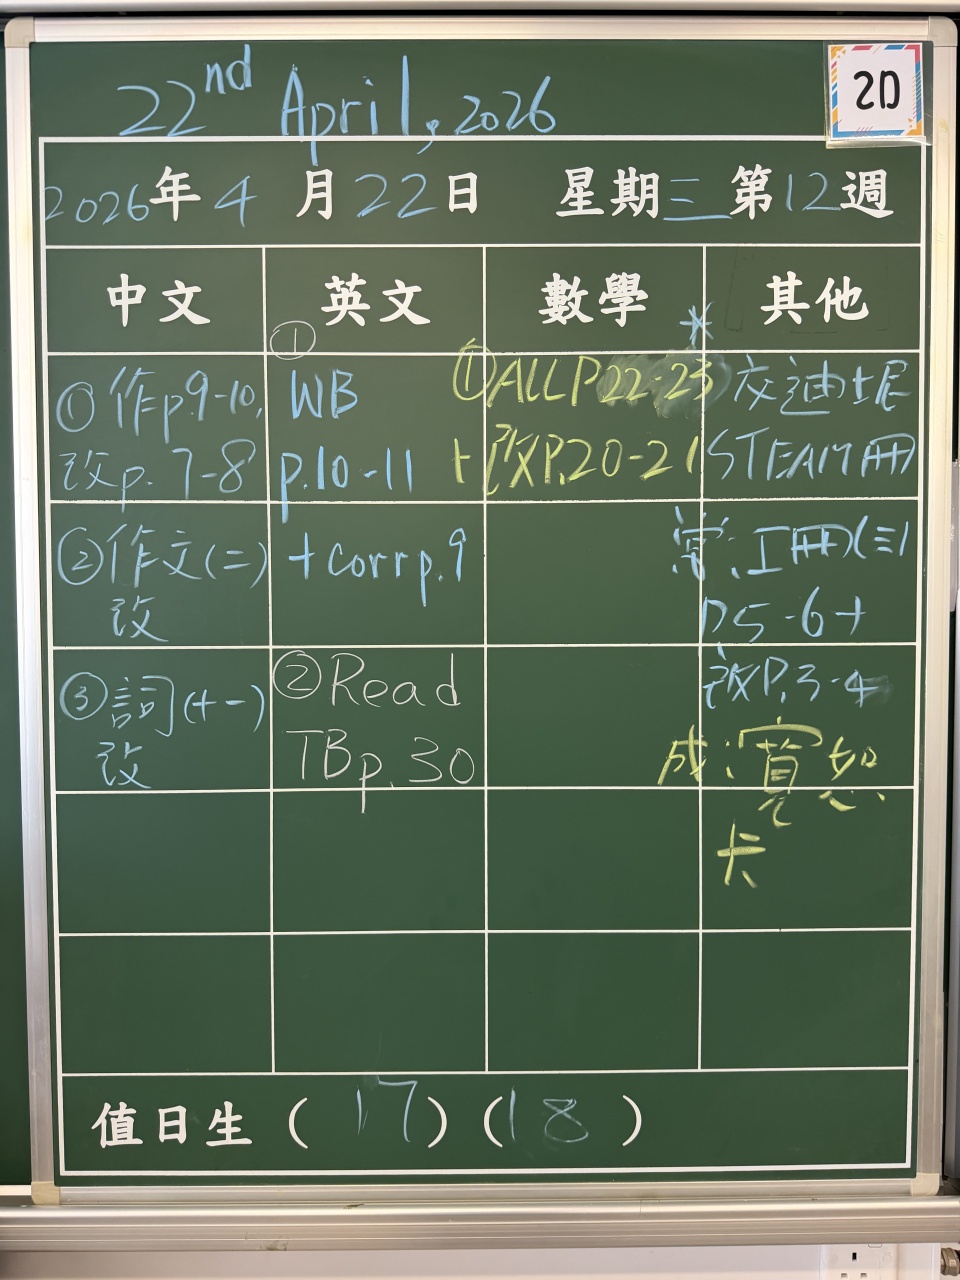 22nd April, 2026
2D
2026年4月22日 星期三 第12週
中文 英文 數學 其他
①作p.9-10,
改p. 7-8
②作文(二)
改
③詞(十一)
改
①
WB
p.10-11
+corr p.9
②Read
TB p.30
①ALL P22-23
+改P.20-21
*交迪
STEAM冊
常:工冊(三)
P5-6+
改P.3-4
成:賞
卡
值日生 ( 17 ) ( 18 )